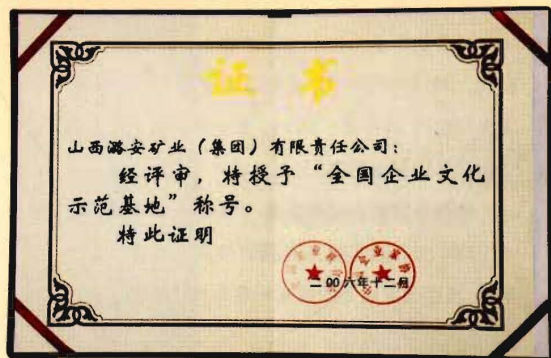 证书
山西潞安矿业（集团）有限责任公司：
经评审，特授予“全国企业文化
示范基地”称号。
特此证明
二00六年十二月